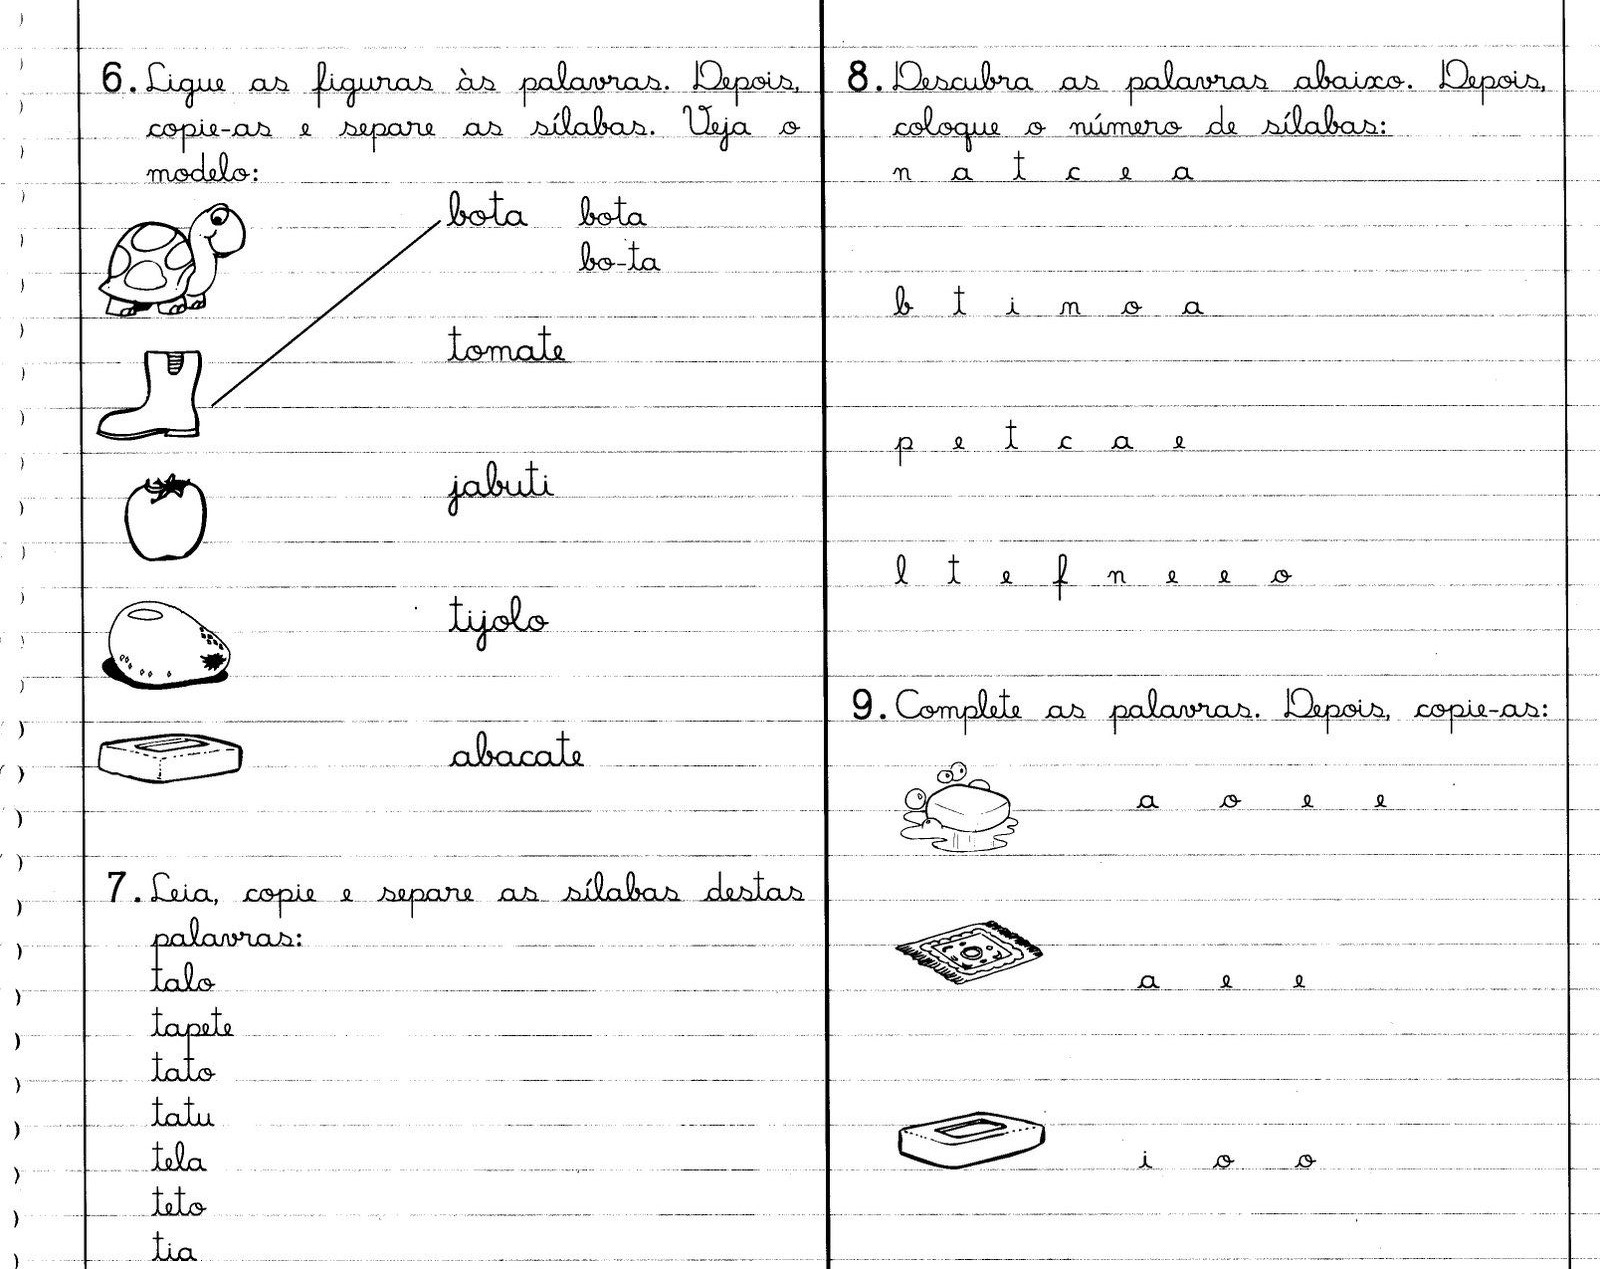 6. Ligue as figuras às palavras. Depois,
copie-as e separe as sílabas. Veja o
modelo:
bota bota
bo-ta
tomate
jabuti
tijolo
abacate
7. Leia, copie e separe as sílabas destas
palavras:
talo
tapete
tato
tatu
tela
teto
tia
8. Descubra as palavras abaixo. Depois,
coloque o número de sílabas:
n a t c e a
b t i n o a
p e t c a e
l t e f n e e o
9. Complete as palavras. Depois, copie-as:
a o e e
a e e
i o o